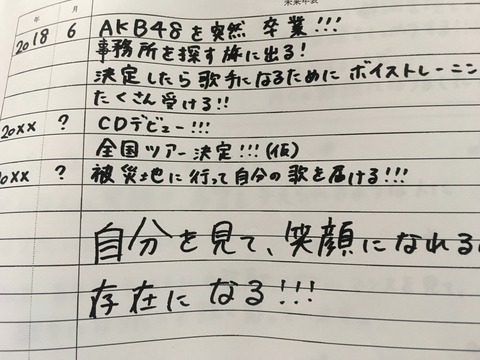 未来年表
年 月
2018 6 AKB48を突然 卒業!!!
事務所を探す旅に出る!
決定したら歌手になるために ボイストレーニン
たくさん受ける!!
20XX ? CDデビュー!!!
全国ツアー決定!!!(仮)
0XX ? 被災地に行って自分の歌を届ける!!!
自分を見て、笑顔になれる
存在に なる!!!